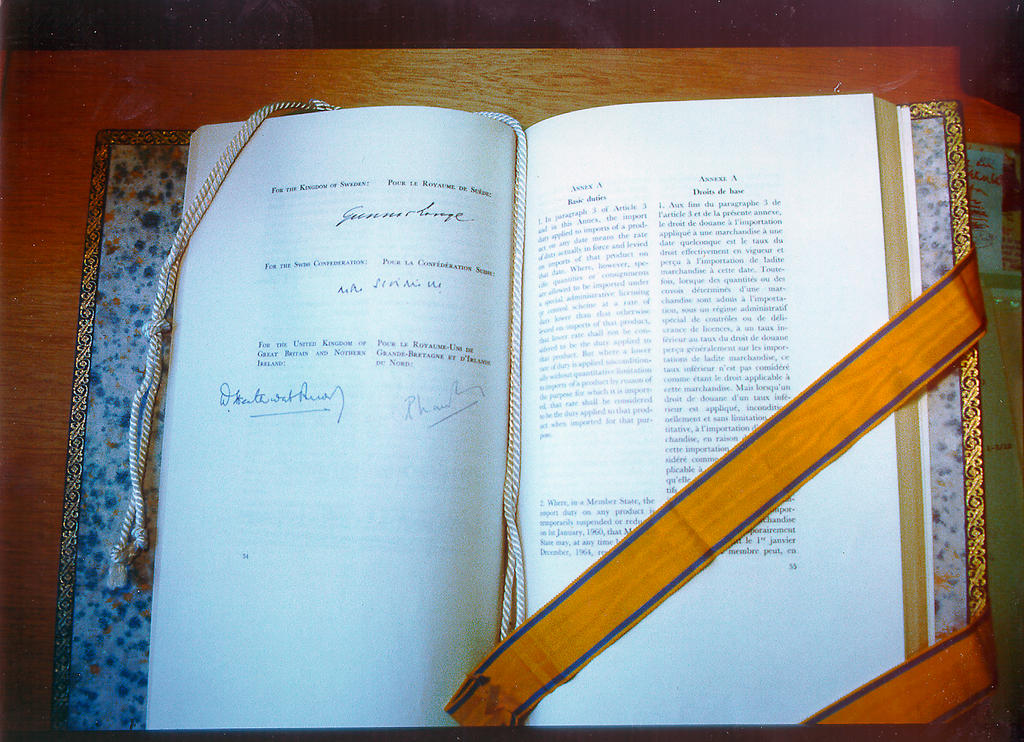 FOR THE KINGDOM OF SWEDEN: POUR LE ROYAUME DE SUÈDE:
FOR THE SWISS CONFEDERATION: POUR LA CONFÉDÉRATION SUISSE:
FOR THE UNITED KINGDOM OF
GREAT BRITAIN AND NOTHERN
IRELAND:
POUR LE ROYAUME-UNI DE
GRANDE-BRETAGNE ET D'IRLANDE
DU NORD:
54
ANNEX A
Basic duties
1. In paragraph 3 of Article 3
and in this Annex, the import
duty applied to imports of a prod-
uct on any date means the rate
of duty actually in force and levied
on imports of that product on
that date. Where, however, spe-
cific quantities or consignments
are allowed to be imported under
a special administrative licensing
or control scheme at a rate of
duty lower than that otherwise
levied on imports of that product,
that lower rate shall not be con-
sidered to be the duty applied to
that product. But where a lower
rate of duty is applied uncondition-
ally without quantitative limitation
to imports of a product by reason of
the purpose for which it is import-
ed, that rate shall be considered
to be the duty applied to that prod-
uct when imported for that pur-
pose.
2. Where, in a Member State, the
import duty on any product is
temporarily suspended or
on 1st January, 1960, that
State may, at any time
December, 1964,
ANNEXE A
Droits de base
1. Aux fins du paragraphe 3 de
l'article 3 et de la présente annexe,
le droit de douane à l'importation
appliqué à une marchandise à une
date quelconque est le taux du
droit effectivement en vigueur et
perçu à l'importation de ladite
marchandise à cette date. Toute-
fois, lorsque des quantités ou des
envois déterminés d'une mar-
chandise sont admis à l'importa-
tion, sous un régime administratif
spécial de contrôles ou de déli-
vrance de licences, à un taux in-
férieur au taux du droit de douane
perçu généralement sur les impor-
tations de ladite marchandise, ce
taux inférieur n'est pas considéré
comme étant le droit applicable à
cette marchandise. Mais lorsqu'un
droit de douane d'un taux infé-
rieur est appliqué, incondition-
nellement et sans limitation
titative, à l'importation
chandise, en raison
cette importation
sidéré comme
plicable à
qu'elle
tifs
le 1er janvier
membre peut, en
55